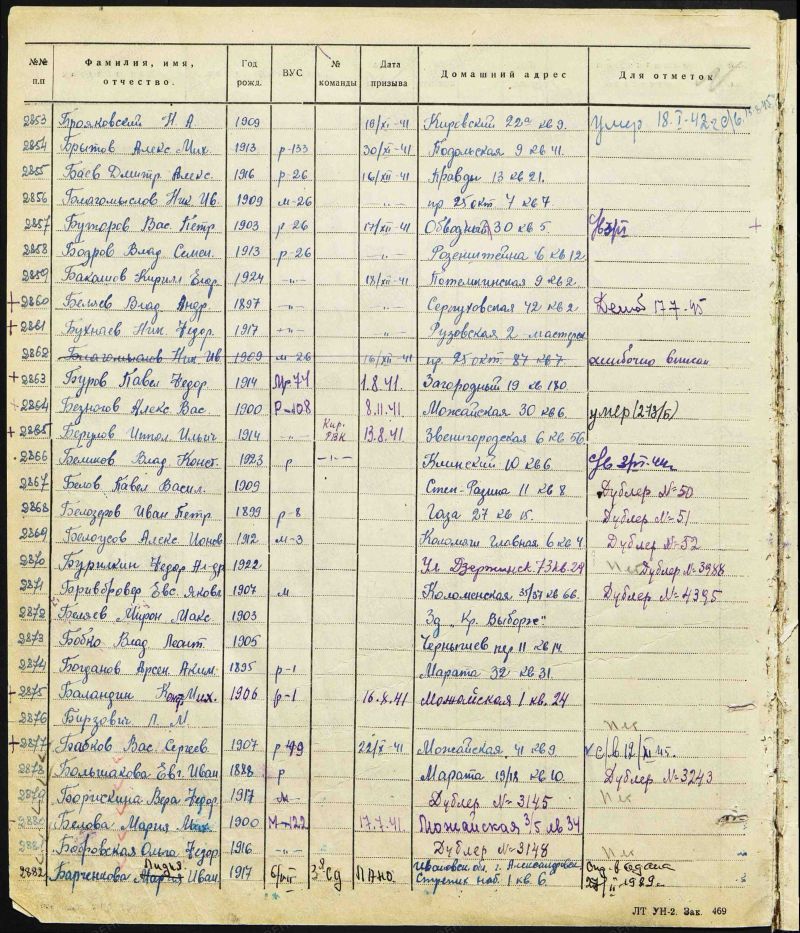 №№ п.п Фамилия, имя, отчество. Год рожд. ВУС № команды Дата призыва Домашний адрес Для отметок
2853 Брояковский Н. А. 1909 16/XI-41 Кировский 22а кв 9. умер 18.I-42г
2854 Брытов Алекс Мих. 1913 р-133 30/XI-41 Подольская 9 кв 41.
2855 Баев Дмитр. Алекс. 1916 р-26 16/XII-41 Правды 13 кв 21.
2856 Благомыслов Ник. Ив. 1909 м-26 -"- пр 25 окт 7 кв 7
2857 Буторов Вас. Петр. 1903 р-26 17/XII-41 Обводный 30 кв 5.
2858 Бодров Влад. Семен. 1913 р-26 -"- Розенштейна 6 кв 12
2859 Бакашов Кирилл Егор. 1924 -"- 18/XII-41 Потемкинская 9 кв 2.
+2860 Беляев Влад Андр. 1897 -"- -"- Серпуховская 42 кв 2 Демоб 17.7.45
+2861 Бухнаев Ник. Федор. 1917 -"- -"- Рузовская 2 мастерск
2862 Благомыслов Ник Ив. 1909 м-26 16/XII-41 пр. 25 окт. 87 кв 7. ошибочно вписан
+2863 Буров Павел Федор 1914 1.8.41. Загородный 19 кв 180
2864 Безногов Алекс Вас 1900 Р-108 8.11.41. Можайская 30 кв 6 умер (273/Б)
+2865 Берулов Иппол. Ильич 1914 -"- Кир. РВК 13.8.41. Звенигородская 6 кв 56
2866 Беликов Влад Конст. 1923 р -"- Клинский 10 кв 6
2867 Белов Павел Васил. 1909 Степ-Разина 11 кв 8 Дублер № 50
2868 Белозеров Иван Петр. 1899 р-8 Газа 27 кв 15. Дублер № 51
2869 Белоусов Алекс Ионов 1912 м-3 Коломяги Главная 6 кв 4 Дублер № 52
2870 Бурилкин Федор Ал-др 1922 Ул Дзержинск. 73 кв 24 Дублер № 3988
2871 Евс. Яковл 1907 м Коломенская 35/37 кв 66. Дублер № 4395
2872 Беляев Мирон Макс. 1903 Зд „Кр. Выборж"
2873 Бобко Влад Леонт. 1905 Чернышев пер 11 кв 14
2874 Богданов Арсен Аким. 1895 р-1 Марата 32 кв 31.
+2875 Баландин Мих. 1906 р-1 16.8.41 Можайская 1 кв. 24
2876 Бирзович Л М
+2877 Бабков Вас. Сергеев. 1907 р 49 22/X-41 Можайская 41 кв 9
2878 Большакова Евг. Иван 1888 р Марата 19/18 кв 10 Дублер № 3243
2879 Борискина Вера Федор. 1917 м- Дублер № 3145
2880 Белова Мария 1900 М-122 17.7.41. Можайская 3/5 кв 34
Бобровская Ольга Федор. 1916 -"- Дублер № 3148
Лидия
2882 Барченкова Мария Иван 1917 б/VII Ивановск. обл. г. Александровск
Стрелик наб. 1 кв 6.
ЛТ УН-2. Зак. 469